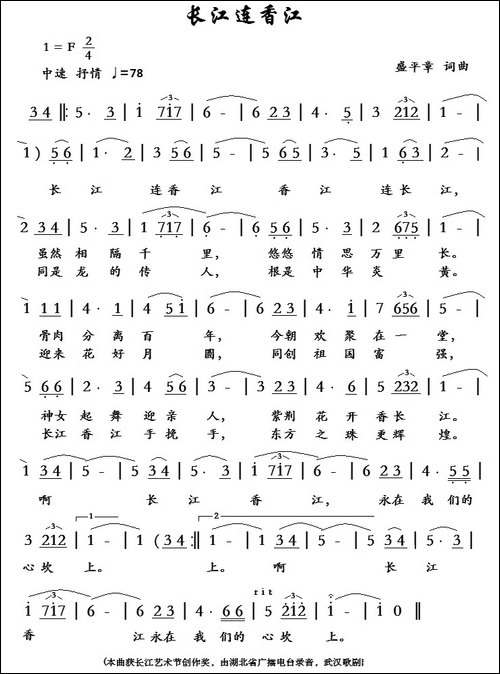 长江连香江
1=F 2/4
中速 抒情 ♩=78
盛平章 词曲
3 4 ‖: 5· 3 | i 7i7 | 6 - | 6 2 3 | 4· 5 | 3 212 | 1 - |
1) 5 6 | 1· 2 | 3 5 6 | 5 - | 5 6 5 | 3· 5 | 1 6 3 | 2 - |
长 江 连 香 江 香 江 连 长 江,
2 3 4 | 5· 3 | 1 717 | 6 - | 6 5 6 | 5· 3 | 2 675 | 1 - |
虽然 相 隔 千 里, 悠悠 情 思 万 里 长。
同是 龙 的 传 人, 根是 中 华 炎 黄。
1 1 1 | 4· 1 | 4 5 i | 6 - | 6 2 3 | 4· 1 | 7 656 | 5 - |
骨肉 分 离 百 年, 今朝 欢 聚 在 一 堂,
迎来 花 好 月 圆, 同创 祖 国 富 强,
5 6 6 | 2· 3 | 4 5 6 | 3 - | 3 2 3 | 4· 6 | 5 232 | 1 - |
神女 起 舞 迎 亲 人, 紫荆 花 开 香 长 江。
长江 香 江 手 挽 手, 东方 之 珠 更 辉 煌。
1 3 4 | 5 - | 5 3 4 | 5· 3 | i 7i7 | 6 - | 6 2 3 | 4· 5 5 |
啊 长 江 香 江, 永在 我 们的
1 2
3 212 | 1 - | 1 (3 4 :‖ 1 - | 1 3 4 | 5 - | 5 3 4 | 5· 3 |
心坎 上。 上。 啊 长 江
rit
i 7i7 | 6 - | 6 2 3 | 4· 6 6 | 5 2i2 | i - | i 0 ‖
香 江 永在 我 们的 心坎 上。
(本曲获长江艺术节创作奖,由湖北省广播电台录音,武汉歌剧